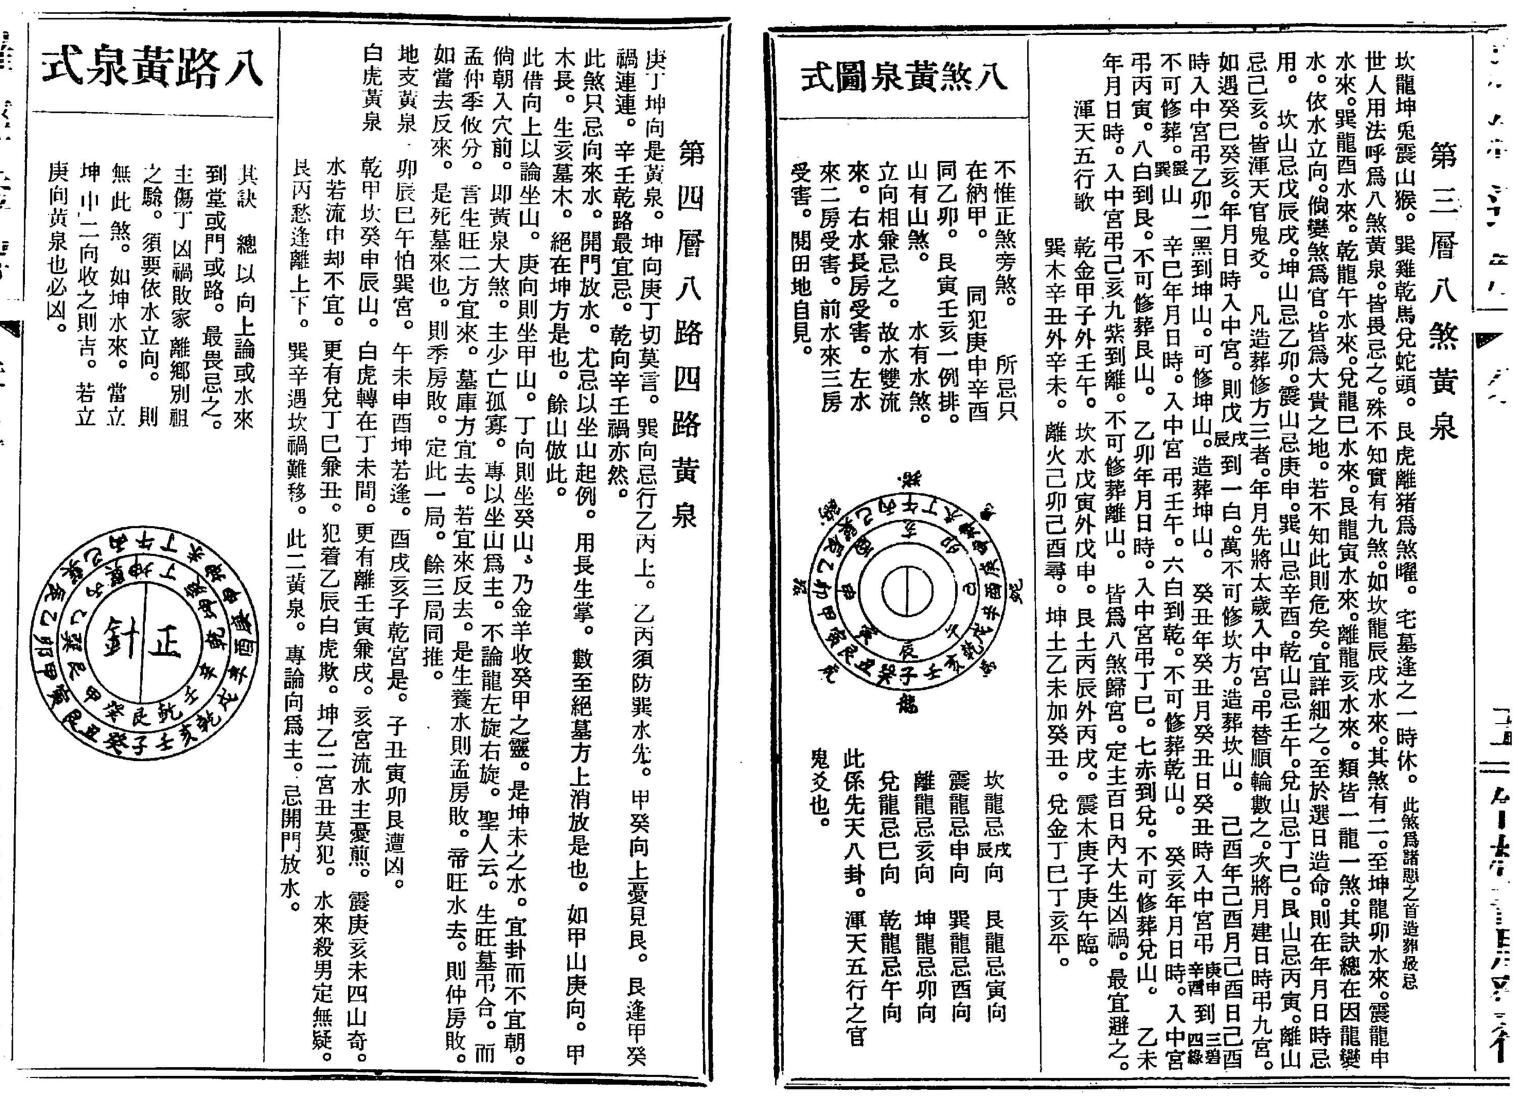 第三層八煞黃泉
坎龍坤兎震山猴。巽雞乾馬兌蛇頭。艮虎離猪爲煞曜。宅墓逢之一時休。此煞爲諸惡之首造葬最忌
世人用法呼爲八煞黃泉。皆畏忌之。殊不知實有九煞。如坎龍辰戌水來。其煞有二。至坤龍卯水來。震龍申
水來。巽龍酉水來。乾龍午水來。兌龍巳水來。艮龍寅水來。離龍亥水來。類皆一龍一煞。其訣總在因龍變
水。依水立向。倘變煞爲官。皆爲大貴之地。若不知此則危矣。宜詳細之。至於選日造命。則在年月日時忌
用。坎山忌戊辰戌。坤山忌乙卯。震山忌庚申。巽山忌辛酉。乾山忌壬午。兌山忌丁巳。艮山忌丙寅。離山
忌己亥。皆渾天官鬼爻。凡造葬修方三者。年月先將太歲入中宮。弔替順輪數之。次將月建日時弔九宮。
如遇癸巳癸亥。年月日時入中宮。則戊戌辰到一白。萬不可修坎方。造葬坎山。己酉年己酉月己酉日己酉
時入中宮弔乙卯二黑到坤山。可修坤山。造葬坤山。癸丑年癸丑月癸丑日癸丑時入中宮弔庚申辛酉到三碧四綠
不可修葬。震巽山 辛巳年月日時。入中宮弔壬午。六白到乾。不可修葬乾山。癸亥年月日時。入中宮
弔丙寅。八白到艮。不可修葬艮山。乙卯年月日時。入中宮弔丁巳。七赤到兌。不可修葬兌山。乙未
年月日時。入中宮弔己亥九紫到離。不可修葬離山。皆爲八煞歸宮。定主百日內大生凶禍。最宜避之。
渾天五行歌 乾金甲子外壬午。坎水戊寅外戊申。艮土丙辰外丙戌。震木庚子庚午臨。
巽木辛丑外辛未。離火己卯己酉尋。坤土乙未加癸丑。兌金丁巳丁亥平。
八煞黃泉圖式
不惟正煞旁煞。所忌只
在納甲。同犯庚申辛酉
同乙卯。艮寅壬亥一例排。
山有山煞。水有水煞。
立向相兼忌之。故水雙流
來。右水長房受害。左水
來二房受害。前水來三房
受害。閱田地自見。
坎龍忌戌辰向 艮龍忌寅向
震龍忌申向 巽龍忌酉向
離龍忌亥向 坤龍忌卯向
兌龍忌巳向 乾龍忌午向
此係先天八卦。渾天五行之官
鬼爻也。
第四層八路四路黃泉
庚丁坤向是黃泉。坤向庚丁切莫言。巽向忌行乙丙上。乙丙須防巽水先。甲癸向上憂見艮。艮逢甲癸
禍連連。辛壬乾路最宜忌。乾向辛壬禍亦然。
此煞只忌向來水。開門放水。尤忌以坐山起例。用長生掌。數至絕墓方上消放是也。如甲山庚向。甲
木長。生亥墓木。絕在坤方是也。餘山倣此。
此借向上以論坐山。庚向則坐甲山。丁向則坐癸山、乃金羊收癸甲之靈。是坤未之水。宜卦而不宜朝。
倘朝入穴前。即黃泉大煞。主少亡孤寡。專以坐山爲主。不論龍左旋右旋。聖人云。生旺墓弔合。而
孟仲季攸分。言生旺二方宜來。墓庫方宜去。若宜來反去。是生養水則孟房敗。帝旺水去。則仲房敗。
如當去反來。是死墓來也。則季房敗。定此一局。餘三局同推。
地支黃泉 卯辰巳午怕巽宮。午未申酉坤若逢。酉戌亥子乾宮是。子丑寅卯艮遭凶。
白虎黃泉 乾甲坎癸申辰山。白虎轉在丁未間。更有離壬寅兼戌。亥宮流水主憂煎。震庚亥未四山奇。
水若流申却不宜。更有兌丁巳兼丑。犯着乙辰白虎欺。坤乙二宮丑莫犯。水來殺男定無疑。
艮丙愁逢離上下。巽辛遇坎禍難移。此二黃泉。專論向爲主。忌開門放水。
八路黃泉式
其訣 總以向上論或水來
到堂或門或路。最畏忌之。
主傷丁凶禍敗家離鄉別祖
之驗。須要依水立向。則
無此煞。如坤水來。當立
坤申二向收之則吉。若立
庚向黃泉也必凶。
正
針